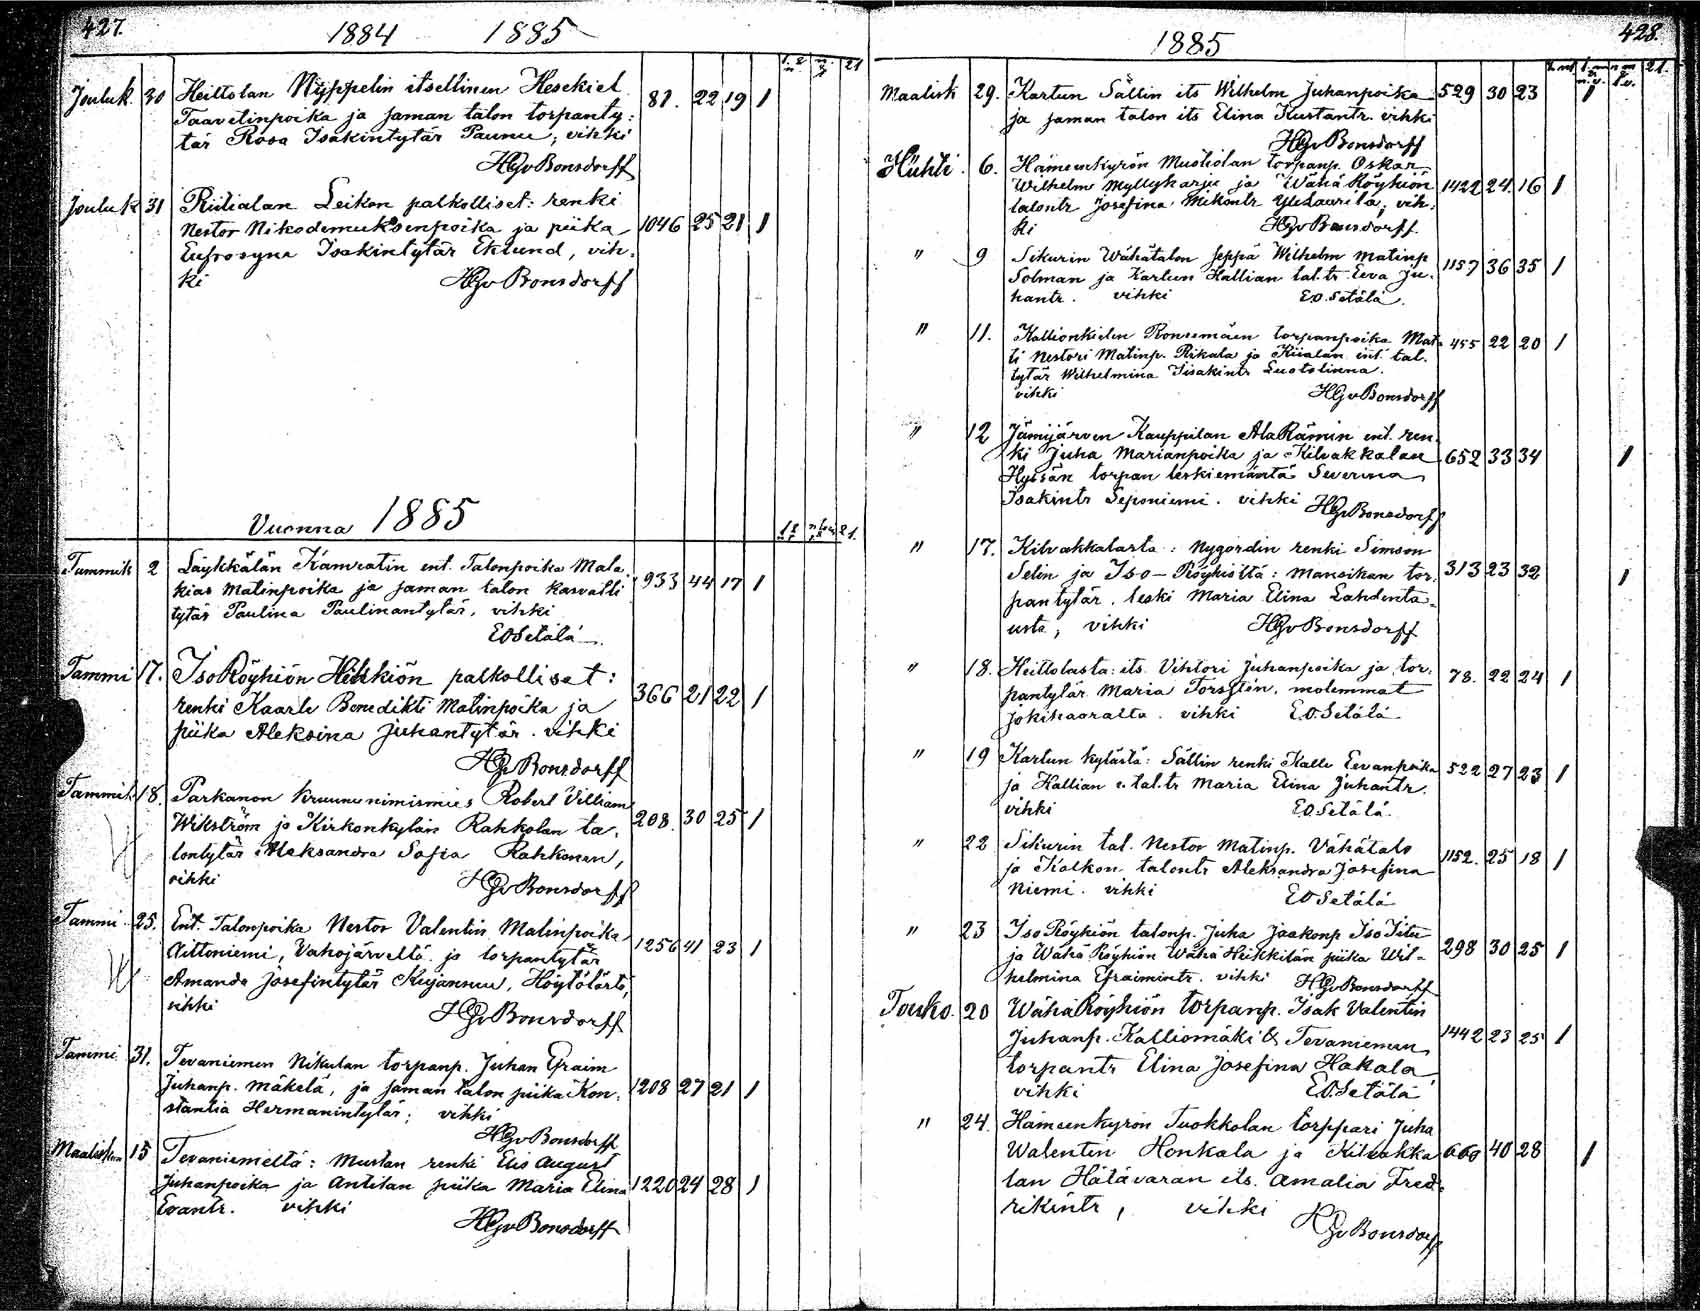 427.
1884 1885
Jouluk. 30 Heittolan Nyppelin itsellinen Hesekiel 81. 22 19 1
Taavetinpoika ja saman talon torpanty:
tär Rosa Isakintytär Paunu; vihki
HGvBonsdorff
Jouluk 31 Riitialan Leikon palkolliset: renki
Nestor Nikodemuksenpoika ja piika 1046 25 21 1
Eufrosyna Isakintytär Eklund, vih-
ki HGvBonsdorff
Vuonna 1885
Tammik 2 Läykkälän Kamratin ent. Talonpoika Mala
kias Matinpoika ja saman talon kasvatti 933 44 17 1
tytär Paulina Paulinantytär, vihki
EOSetälä.
Tammi 17. IsoRöyhiön Heikkiön palkolliset:
renki Kaarle Benedikti Matinpoika ja 366 21 22 1
piika Aleksina Juhantytär. vihki
HGvBonsdorff
Tammik 18. Parkanon kruununimismies Robert Villiam
Wikström ja Kirkonkylän Rahkolan ta- 208. 30 25 1
lontytär Aleksandra Sofia Rahkonen,
vihki HGvBonsdorff
Tammi 25. Ent. Talonpoika Nestor Valentin Matinpoika
Aittoniemi, Vahojärveltä ja torpantytär 1256 41 23 1
Amanda Josefintytär Kujansuu, Höytölästä,
vihki HGvBonsdorff
Tammi. 31. Tevaniemen Nikulan torpanp. Juhan Efraim
Juhanp. Mäkelä, ja saman talon piika Kon- 1208 27 21 1
stantia Hermanintytär; vihki
HGvBonsdorff
Maalisk 15 Tevaniemeltä: Mustan renki Elis August
Juhanpoika ja Anttilan piika Maria Elina 1220 24 28 1
Evantr. vihki
HGvBonsdorff
428.
1885
Maalisk 29. Kartun Sällin its Wilhelm Juhanpoika 529 30 23 1
ja saman talon its Elina Kustantr. vihki
HGvBonsdorff
Huhti. 6. Hämeenkyrön Mustiolan torpanp. Oskar
Wilhelm Myllykarju ja Wähä Röyhiön 1422 24. 16 1
talontr Josefina Mikontr Ylitaurila, vih-
ki HGvBonsdorff
" 9 Sikurin Wähätalon seppä Wilhelm Matinp
Solman ja Kartun Hallian tal.tr Eeva Ju- 1157 36 35 1
hantr. vihki E.O.Setälä.
" 11. Kallionkielen Ronsemäen torpanpoika Mat-
ti Nestori Matinp. Rikala ja Kiialan ent. tal. 455 22 20 1
tytär Wilhelmina Iisakintr Luotolinna.
vihki HGvBonsdorff
" 12 Jämijärven Kauppilan AlaRämin ent. ren
ki Juha Marianpoika ja Kilvakkalan 652 33 34 1
Hyssän torpan leskiemäntä Severina
Isakintr Seponiemi. vihki HGvBonsdorff
" 17. Kilvakkalasta: Nygordin renki Simson
Selin ja Iso-Röyhiöltä: Mansikan tor- 313 23 32 1
pantytär. leski Maria Elina Lahdenta-
usta; vihki HGvBonsdorff
" 18. Heittolasta: its. Vihtori Juhanpoika ja tor-
pantytär Maria Torstén, molemmat 78. 22 24 1
Jokihaaralta. vihki E.O.Setälä
" 19 Kartun kylästä: Sällin renki Kalle Eevanpoika 522 27 23 1
ja Hallian e. tal.tr Maria Elina Juhantr.
vihki E.O.Setälä.
" 22 Sikurin tal. Nestor Matinp. Vähätalo 1152. 25 18 1
ja Kalkon talontr Aleksandra Josefina
Niemi. vihki EOSetälä
" 23 IsoRöyhiön talonp. Juha Jaakonp IsoIitu
ja Wähä Röyhiön Wähä Heikkilän piika Wil- 298 30 25 1
helmina Efraimintr. vihki HGvBonsdorff
Touko. 20 WähäRöyhiön torpanp. Isak Valentin
Juhanp. Kalliomäki & Tevaniemen 1442 23 25 1
torpantr Elina Josefina Hakala,
vihki E.O.Setälä
" 24. Hämeenkyrön Tuokkolan torppari Juha
Walentin Honkala ja Kilvakka 660 40 28 1
lan Hätävaran its. Amalia Fred-
rikintr, vihki
HGvBonsdorff